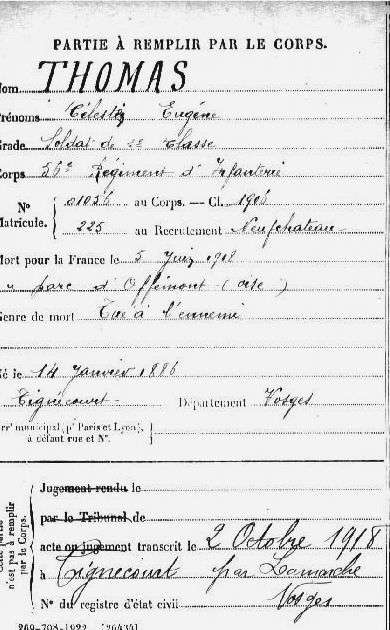 PARTIE À REMPLIR PAR LE CORPS.
Nom THOMAS
Prénoms Célestin Eugène
Grade Soldat de 2e Classe
Corps 56e Régiment d'Infanterie
N° Matricule. { 01036 au Corps. — Cl. 1906
225 au Recrutement Neufchateau
Mort pour la France le 5 Juin 1918
au parc d'Offémont (oise)
Genre de mort Tué à l'ennemi
Né le 14 Janvier 1886
Tignécourt Département Vosges
Arrt municipal (pr Paris et Lyon),
à défaut rue et N°.
Cette partie n'est pas à remplir par le Corps.
Jugement rendu le
par le Tribunal de
acte ou jugement transcrit le 2 Octobre 1918
à Tignécourt par Lamarche
Vosges
N° du registre d'état civil